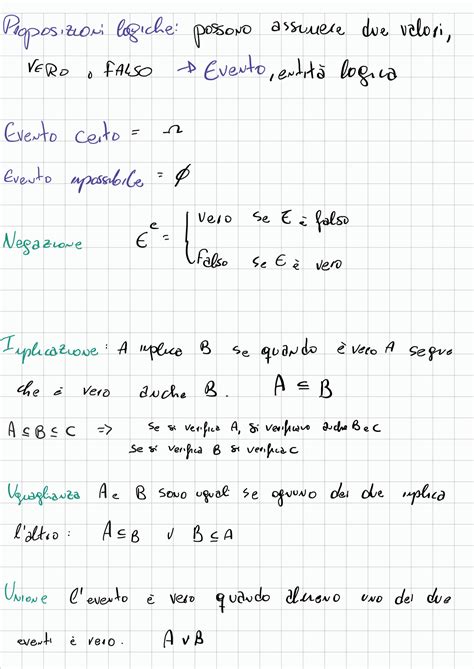 Proposizioni logiche: possono assumere due valori,
VERO o FALSO → Evento, entità logica
Evento certo = Ω
Evento impossibile = ∅
Negazione E^c = { vero se E è falso
falso se E è vero
Implicazione: A implica B se quando è vero A segue
che è vero anche B. A ⊆ B
A ⊆ B ⊆ C => Se si verifica A, si verificano anche B e C
Se si verifica B si verifica C
Uguaglianza A e B sono uguali se ognuno dei due implica
l'altro: A ⊆ B ∨ B ⊆ A
Unione l'evento è vero quando almeno uno dei due
eventi è vero. A ∨ B